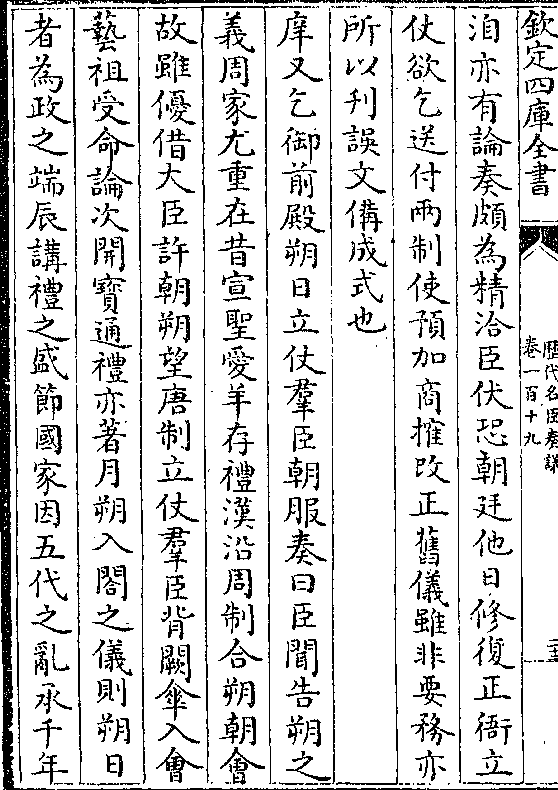 欽定四庫全書
歴代名臣奏議
卷一百十九
洎亦有論奏頗為精洽臣伏恐朝廷他日修復正衙立
仗欲乞送付兩制使預加商搉改正舊儀雖非要務亦
所以刋誤文備成式也
庠又乞御前殿朔日立仗羣臣朝服奏曰臣聞告朔之
義周家尤重在昔宣聖愛羊存禮漢沿周制合朔朝會
故雖優借大臣許朝朔望唐制立仗羣臣背闕傘入會
藝祖受命論次開寶通禮亦著月朔入閤之儀則朔日
者為政之端辰講禮之盛節國家因五代之亂承千年